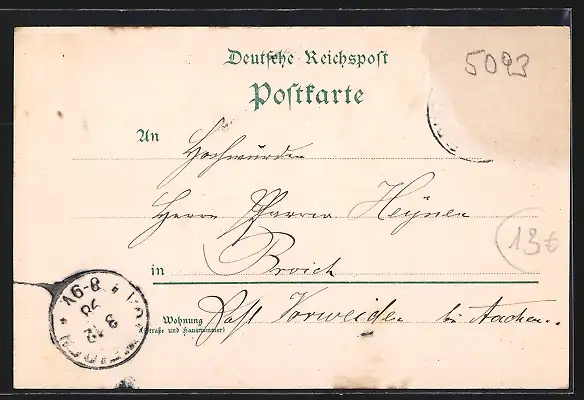 Deutsche Reichspost
Postkarte
5093
An Hochwürden
Herrn Pfarrer Heynen
13€
in Broich
Wohnung
(Straße und Hausnummer)
Post Vorweiden bei Aachen.
3 12 98
8-9V